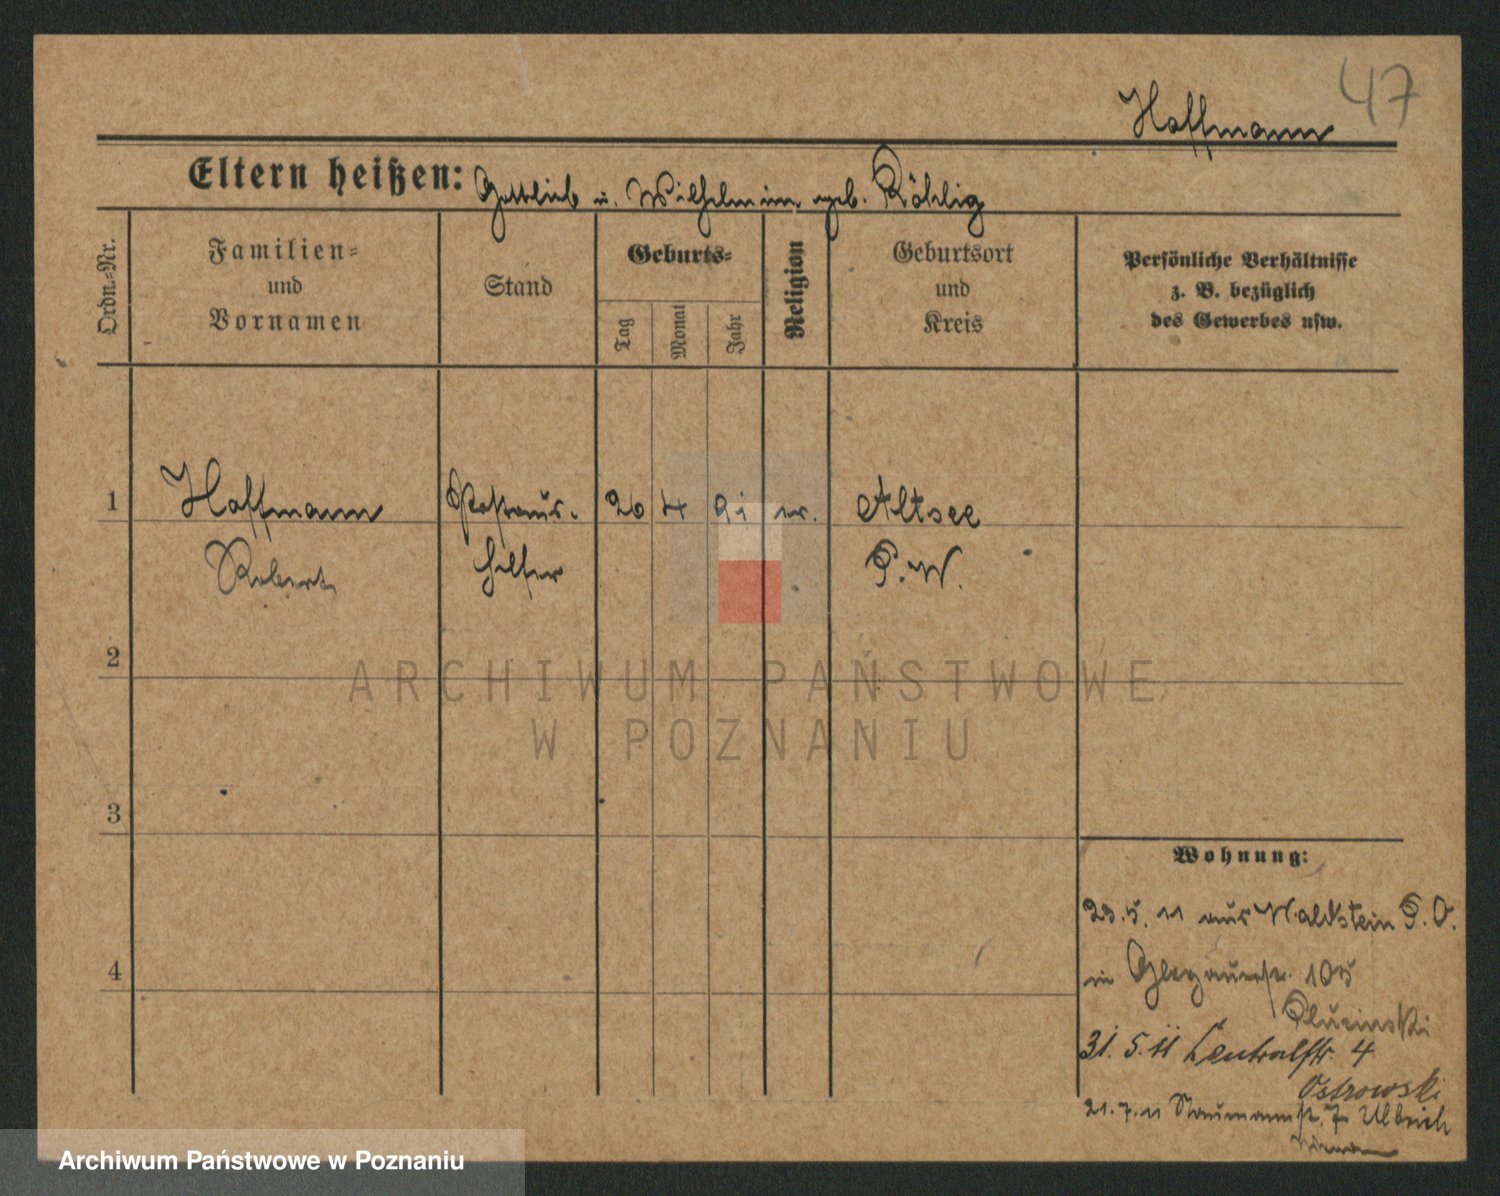 47
Hoffmann
Eltern heißen: Gottlieb u. Wilhelmine geb. Röhlig
Ordn.-Nr.
Familien-
und
Vornamen
Stand
Geburts-
Tag
Monat
Jahr
Religion
Geburtsort
und
Kreis
Persönliche Verhältnisse
z. B. bezüglich
des Gewerbes usw.
1
Hoffmann
Robert
Postaus-
helfer
26 4 91 ev.
Altsee
P. W.
2
3
4
Wohnung:
23.5.11 aus Waldstein P. O.
in Glogauerstr. 105
Plucinski
31.5.11 Centralstr. 4
Ostrowski
21.7.11 Naumannstr. 7 Ulbrich
ARCHIWUM PAŃSTWOWE
W POZNANIU
Archiwum Państwowe w Poznaniu